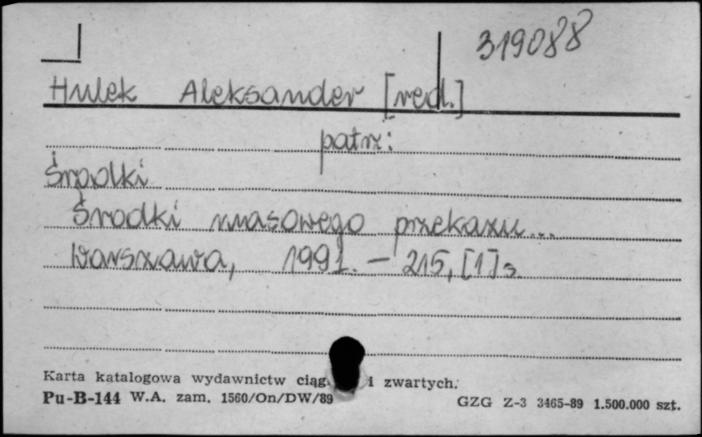 319088
Hulek Aleksander [red.]
patrz:
Środki
Środki masowego przekazu...
Warszawa, 1991. - 215, [1] s.
Karta katalogowa wydawnictw ciąg i zwartych.
Pu-B-144 W.A. zam. 1560/On/DW/89 GZG Z-3 3465-89 1.500.000 szt.